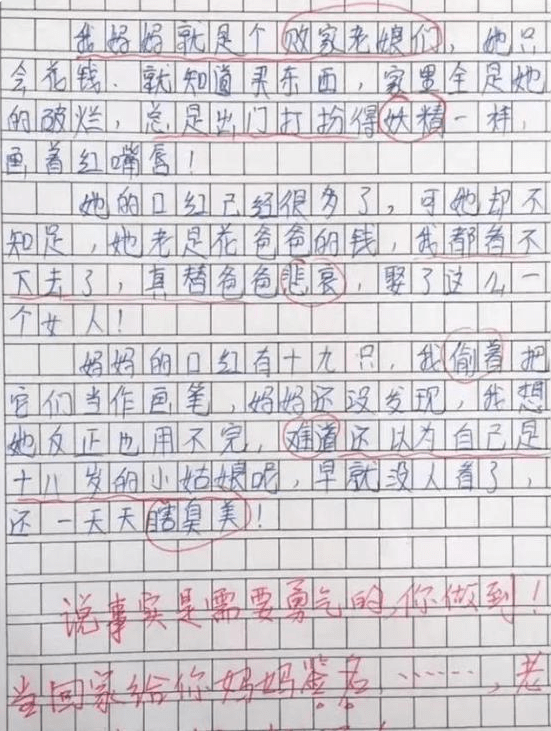 我妈妈就是个败家老娘们，她只
会花钱．就知道买东西，家里全是她
的破烂，总是出门打扮得妖精一样，
画着红嘴唇！
她的口红已经很多了，可她却不
知足，她老是花爸爸的钱，我都看不
下去了，真替爸爸悲哀，娶了这么一
个女人！
妈妈的口红有十九只，我偷着把
它们当作画笔，妈妈还没发现，我想
她反正也用不完，难道还以为自己是
十八岁的小姑娘呢，早就没人看了，
还一天天瞎臭美！
说事实是需要勇气的，你做到！
拿回家给你妈妈签名……，老